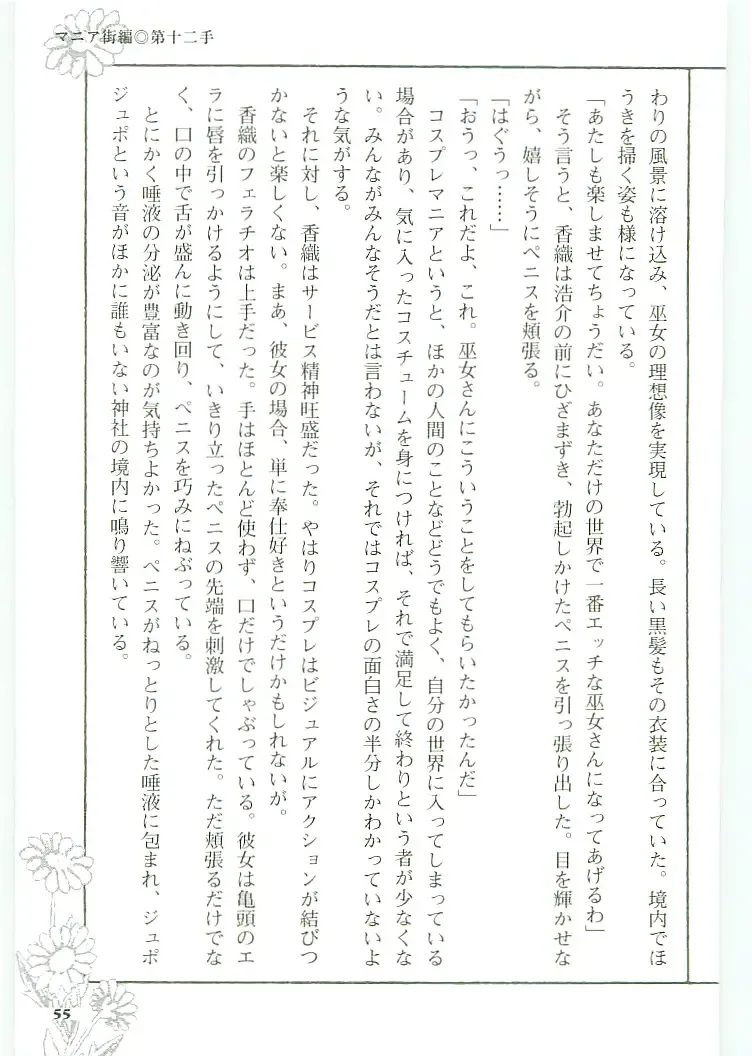 マニア街編◎第十二手
わりの風景に溶け込み、巫女の理想像を実現している。長い黒髪もその衣装に合っていた。境内でほ
うきを掃く姿も様になっている。
「あたしも楽しませてちょうだい。あなただけの世界で一番エッチな巫女さんになってあげるわ」
そう言うと、香織は浩介の前にひざまずき、勃起しかけたペニスを引っ張り出した。目を輝かせな
がら、嬉しそうにペニスを頬張る。
「はぐうっ……」
「おうっ、これだよ、これ。巫女さんにこういうことをしてもらいたかったんだ」
コスプレマニアというと、ほかの人間のことなどどうでもよく、自分の世界に入ってしまっている
場合があり、気に入ったコスチュームを身につければ、それで満足して終わりという者が少なくな
い。みんながみんなそうだとは言わないが、それではコスプレの面白さの半分しかわかっていないよ
うな気がする。
それに対し、香織はサービス精神旺盛だった。やはりコスプレはビジュアルにアクションが結びつ
かないと楽しくない。まあ、彼女の場合、単に奉仕好きというだけかもしれないが。
香織のフェラチオは上手だった。手はほとんど使わず、口だけでしゃぶっている。彼女は亀頭のエ
ラに唇を引っかけるようにして、いきり立ったペニスの先端を刺激してくれた。ただ頬張るだけでな
く、口の中で舌が盛んに動き回り、ペニスを巧みにねぶっている。
とにかく唾液の分泌が豊富なのが気持ちよかった。ペニスがねっとりとした唾液に包まれ、ジュポ
ジュポという音がほかに誰もいない神社の境内に鳴り響いている。
55